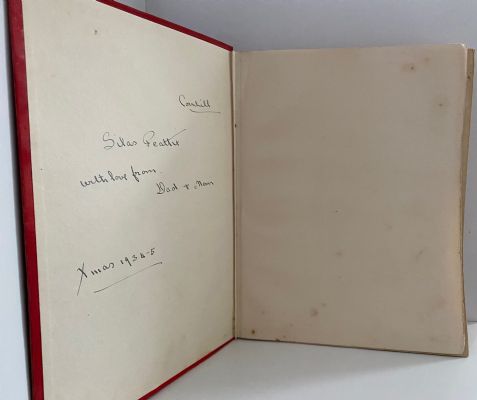 Cornhill
Silas Peattie
with love from
Dad & Mom
Xmas 1934-5